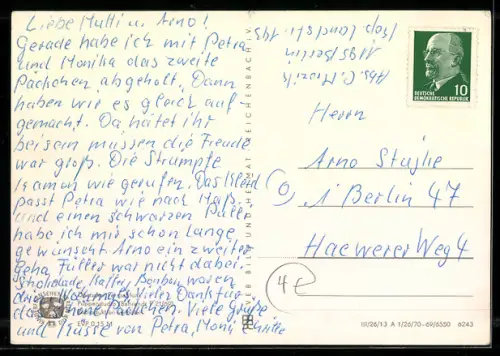 Liebe Mutti u. Arno!
Gerade habe ich mit Petra
und Monika das zweite
Päckchen abgeholt. Dann
haben wir es gleich auf-
gemacht. Da hätet ihr
bei sein müssen die Freude
war groß. Die Strümpfe
kamen wie gerufen. Das Kleid
passt Petra wie nach Maß.
und einen schwarzen Pulli
habe ich mir schon lange
gewünscht. Arno ein zweiter
Geha Füller war nicht dabei.
Schokolade, Kaffee, Bonbon waren
drin. Nochmals vielen Dank für
das schöne Päckchen. Viele Grüße
und Küsse von Petra, Moni
Abs. C.
1195 Berlin
DEUTSCHE
DEMOKRATISCHE REPUBLIK
10
Herrn
Arno
1 Berlin 47
Haewerer Weg 4
4E
VEB BILD UND HEIMAT REICHENBACH I. V.
EVP 0,15 M
III/26/13 A 1/26/70-69/6550 6243